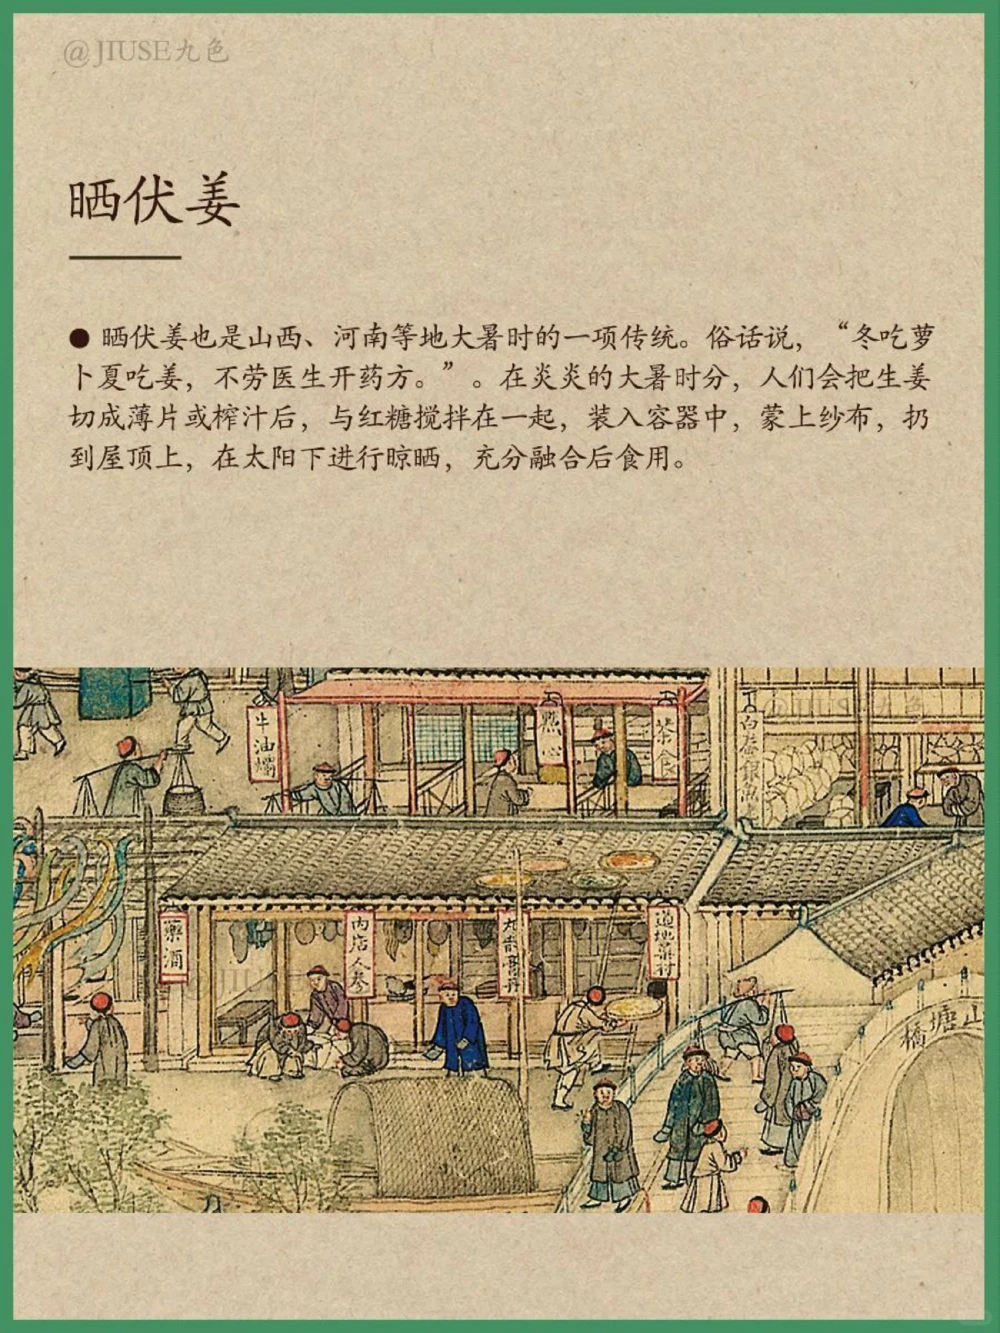 @JIUSE九色
晒伏姜
● 晒伏姜也是山西、河南等地大暑时的一项传统。俗话说，“冬吃萝
卜夏吃姜，不劳医生开药方。”。在炎炎的大暑时分，人们会把生姜
切成薄片或榨汁后，与红糖搅拌在一起，装入容器中，蒙上纱布，扔
到屋顶上，在太阳下进行晾晒，充分融合后食用。
牛油燭
點心
茶食
藥酒
内店人參
丸散膏丹
道地藥材
山塘橋